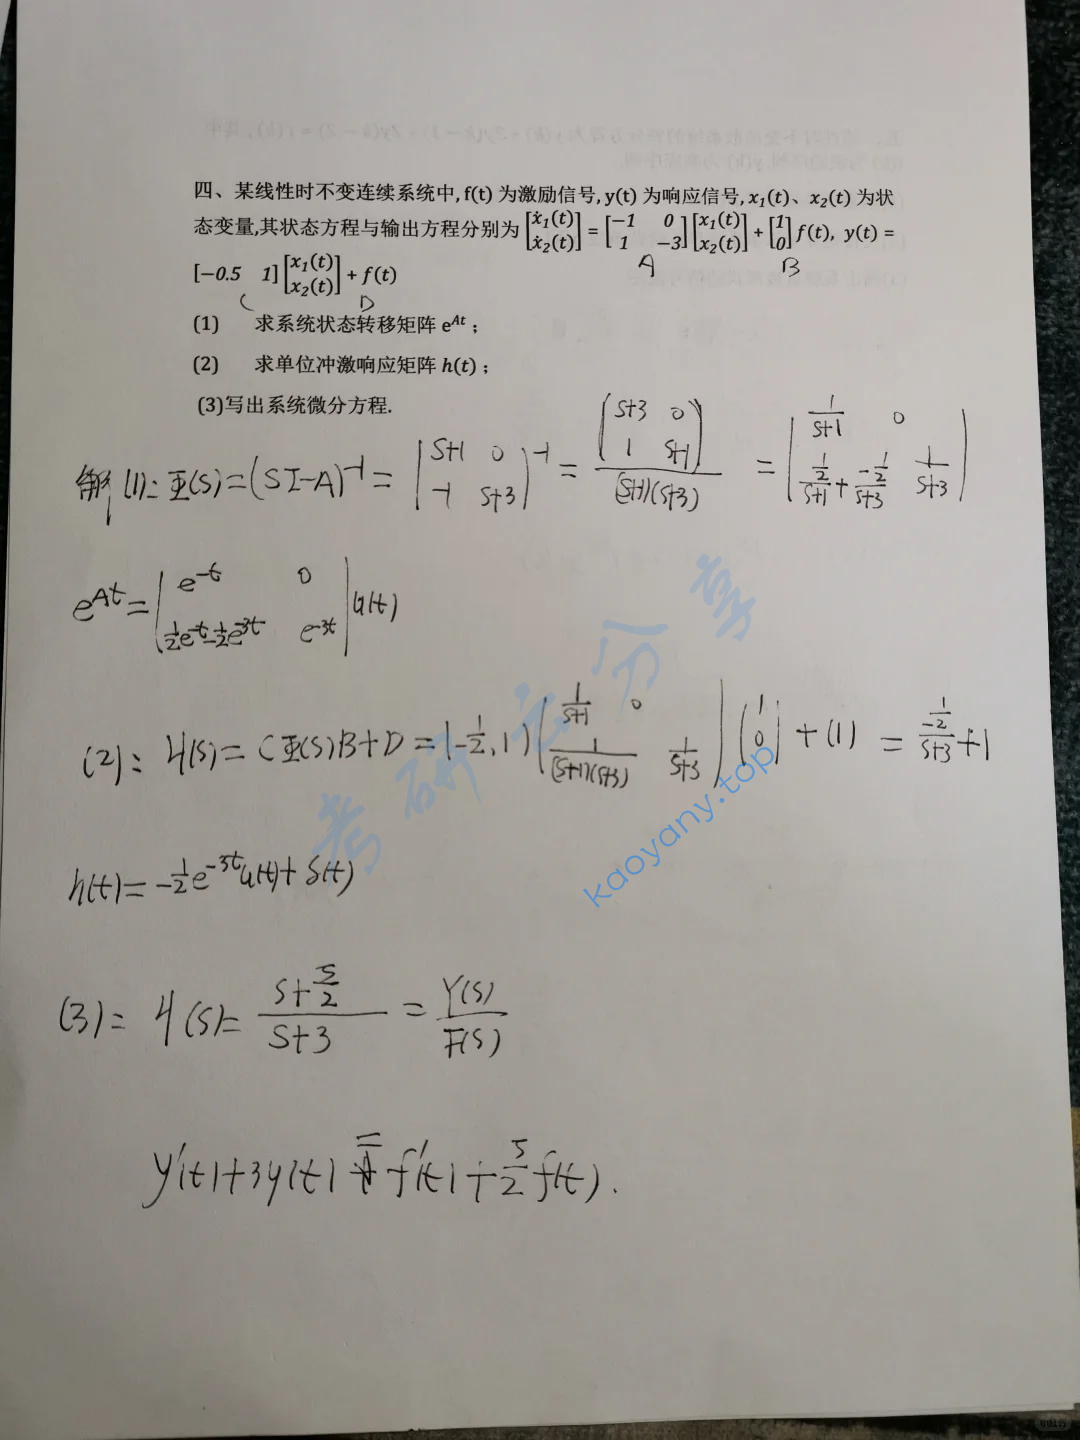 四、某线性时不变连续系统中, f(t) 为激励信号, y(t) 为响应信号, x₁(t)、x₂(t) 为状
态变量,其状态方程与输出方程分别为 [ẋ₁(t) ẋ₂(t)] = [−1 0 1 −3] [x₁(t) x₂(t)] + [1 0] f(t), y(t) =
A B
[−0.5 1] [x₁(t) x₂(t)] + f(t)
C D
(1) 求系统状态转移矩阵 e^At ;
(2) 求单位冲激响应矩阵 h(t) ;
(3)写出系统微分方程.
解(1): Φ(s)=(SI-A)^-1 = |S+1 0 -1 S+3|^-1 = (S+3 0 1 S+1)/((S+1)(S+3)) = |1/(S+1) 0 (1/2)/(S+1)+(-1/2)/(S+3) 1/(S+3)|
e^At = |e^-t 0 1/2e^-t-1/2e^-3t e^-3t| u(t)
(2): H(s)= CΦ(s)B+D = (-1/2, 1) (1/(S+1) 0 1/((S+1)(S+3)) 1/(S+3)) (1 0) + (1) = (-1/2)/(S+3)+1
h(t)= -1/2e^-3t u(t)+ δ(t)
(3): H(s)= (S+5/2)/(S+3) = Y(s)/F(s)
y'(t)+3y(t) = f'(t)+5/2f(t).
考研云分享
kaoyany.top